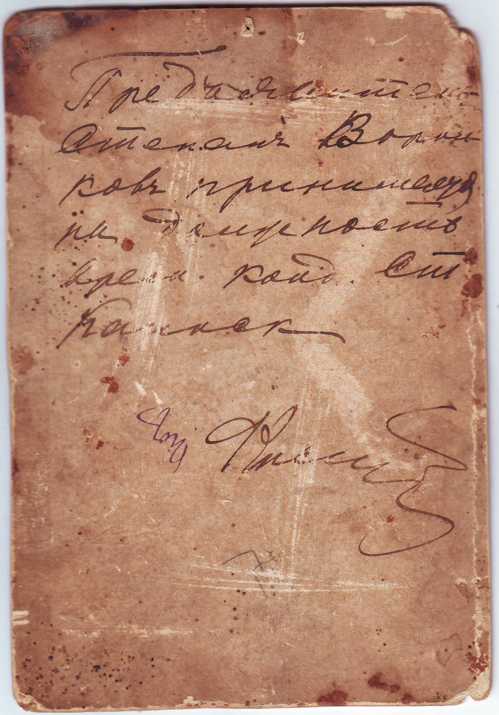 Предъявитель
Степанъ Ворон-
ковъ принимается
на должность
врем. конд. Ст